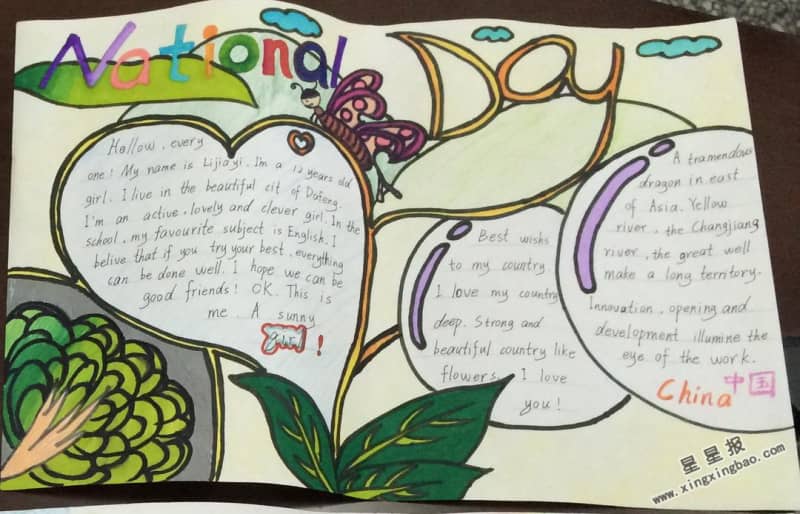 National Day
Hallow, every
one! My name is Lijiayi. I'm a 12 years old
girl. I live in the beautiful cit of Dafeng.
I'm an active, lovely and clever girl. In the
school, my favourite subject is English. I
belive that if you try your best, everything
can be done well. I hope we can be
good friends! OK. This is
me. A sunny
girl!
Best wishs
to my country.
I love my country
deep. Strong and
beautiful country like
flowers. I love
you!
A tramendous
dragon in east
of Asia. Yellow
river, the Changjiang
river, the great well
make a long territory.
Innovation, opening and
development illumine the
eye of the work.
China 中国
星星报
www.xingxingbao.com